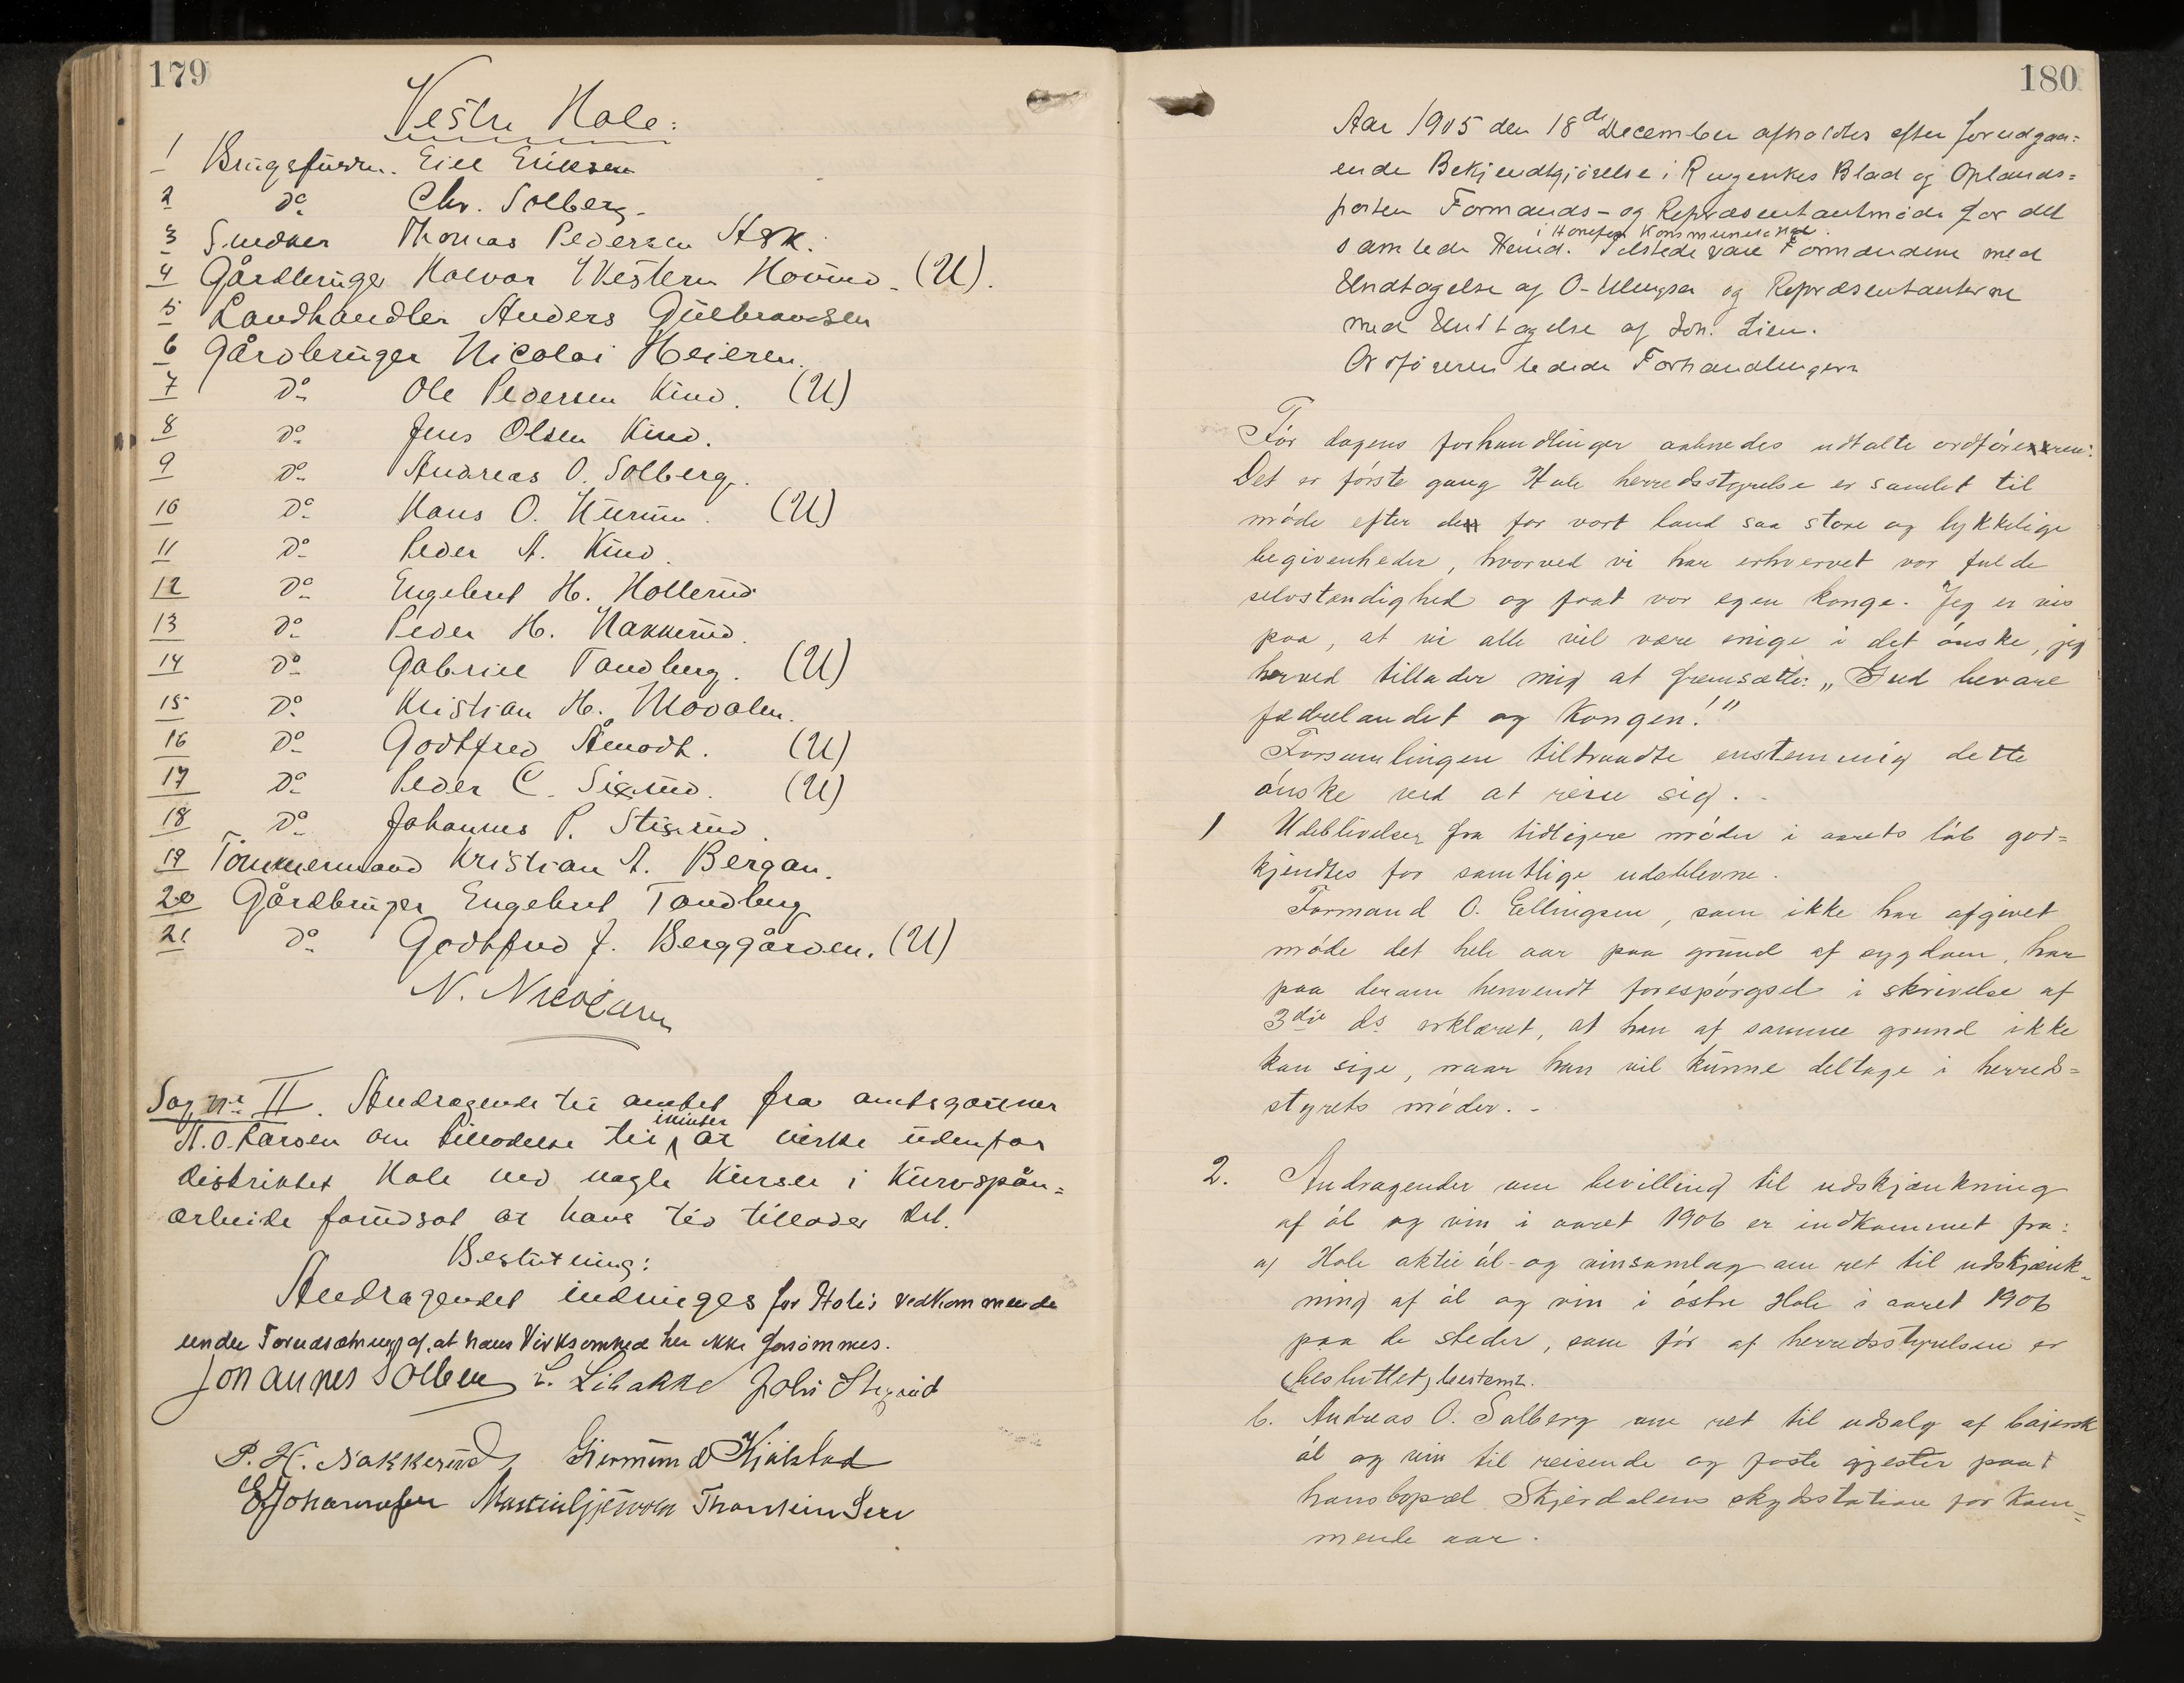 179
Vestre Hole:
1 Brugsfuldm. Eill Eriksen
2 do Chr. Solberg
3 Smedker Thomas Pedersen Ask.
4 Gårdbruger Halvor Vestern Hoünd. (U).
5 Landhandler Anders Gulbrandsen
6 Gårdbruger Nicolai Heieren.
7 do Ole Pedersen Kind. (U)
8 do Jens Olsen Kind.
9 do Andreas O. Solberg.
10 do Hans O. Hurum. (U)
11 do Peder A. Kind.
12 do Engebret H. Hollerud
13 do Peder H. Nakkerud.
14 do Gabriel Tandberg. (U)
15 do Kristian H. Moodalen.
16 do Godtfred Åmodt. (U)
17 do Peder C. Sigrud. (U)
18 do Johannes P. Stigrud.
19 Tömmermand Kristian A. Bergan.
20 Gårdbruger Engebret Tandberg
21 do Godtfred J. Berggården. (U)
Sag nr. II. Andragende til amtet fra amtsgartner
A. O. Larsen om tilladelse til ivinter at virke udenfor
distriktet Hole ved nogle Kurser i Kurvspån=
arbeide forudsat at hans tid tillader det.
Beslutning:
Andragendet indvilges for Holes Vedkommende
under Forudsætning af, at hans Virksomhed her ikke forsømmes.
Johannes Solberg L. Libakke Johs Stigrud
P. H. Nakkerud, Giermund Kjölstad
E Johannesen Martin Gjesvold Thorstein Sere
180
Aar 1905 den 18de December afholdtes efter forudgaa=
ende Bekjendtgjørelse i Ringerikes Blad og Oplands=
posten Formands- og Repræsentantmøde for det
i Hønefos Kommunelokal
samlede Herred. Tilstede vare Formændene med
Undtagelse af O. Ellingsen og Repræsentanterne
med Undtagelse af Joh. Lien.
Ordføreren ledede Forhandlingerne
Før dagens forhandlinger aabnedes udtalte ordføreren:
Det er første gang Hole herredsstyrelse er samlet til
møde efter de for vort land saa store og lykkelige
begivenheder, hvorved vi har erhvervet vor fulde
selvstændighed og faat vor egen konge. Jeg er vis
paa, at vi alle vil være enige i det ønske, jeg
herved tillader mig at fremsætte: „Gud bevare
fædrelandet og Kongen!"
Forsamlingen tiltraadte enstemmig dette
ønske ved at reise sig. -
1 Udeblivelser fra tidligere møder i aarets løb god=
kjendtes for samtlige udeblevne.
Formand O. Ellingsen, som ikke har afgivet
møde det hele aar paa grund af sygdom, har
paa derom henvendt forespørgsel i skrivelse af
3die ds erklæret, at han af samme grund ikke
kan sige, naar han vil kunne deltage i herreds=
styrets møder. -
2. Andragender om bevilling til udskjænkning
af øl og vin i aaret 1906 er indkommet fra:
a) Hole aktie øl- og vinsamlag om ret til udskjænk=
ning af øl og vin i østre Hole i aaret 1906
paa de steder, som før af herredsstyrelsen er
(besluttet) bestemt.
b. Andreas O. Solberg om ret til udsalg af baiersk
øl og vin til reisende og faste gjester paa
hans bopæl Skjærdalens skydsstation for kom=
mende aar.